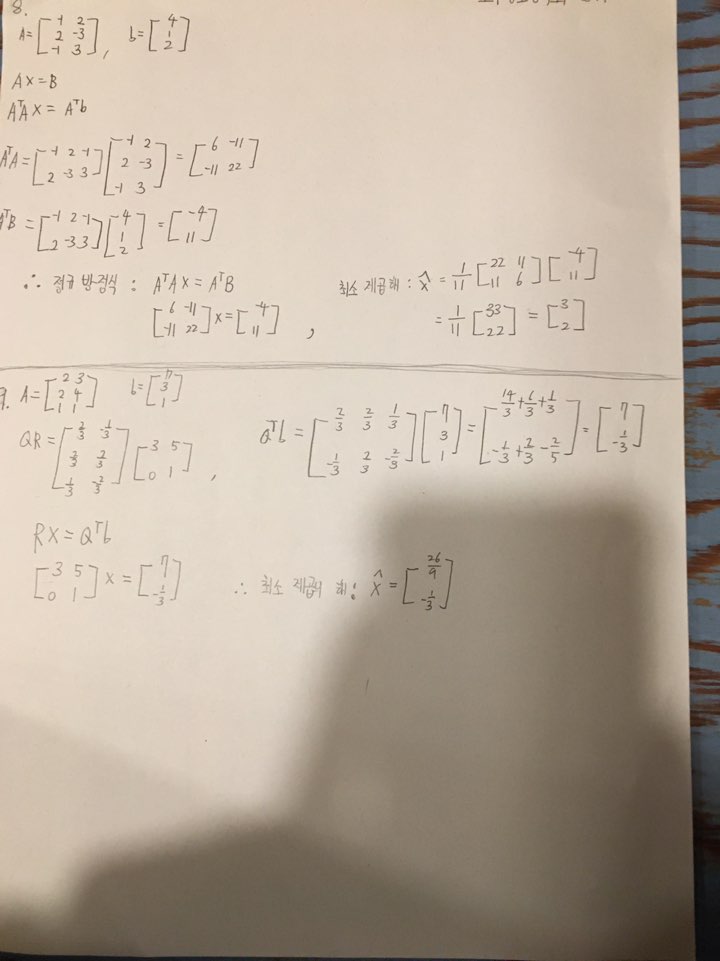 8.
A = [-1 2; 2 -3; -1 3], b = [4; 1; 2]
Ax = B
AᵀAx = Aᵀb
AᵀA = [-1 2 -1; 2 -3 3] [-1 2; 2 -3; -1 3] = [6 -11; -11 22]
AᵀB = [-1 2 -1; 2 -3 3] [4; 1; 2] = [-4; 11]
∴ 정규 방정식 : AᵀAx = AᵀB
[6 -11; -11 22] x = [-4; 11] ,
최소 제곱해 : x̂ = 1/11 [22 11; 11 6] [-4; 11]
= 1/11 [33; 22] = [3; 2]
9. A = [2 3; 2 4; 1 1] b = [7; 3; 1]
QR = [2/3 -1/3; 2/3 2/3; 1/3 -2/3] [3 5; 0 1] , Qᵀb = [2/3 2/3 1/3; -1/3 2/3 -2/3] [7; 3; 1] = [14/3 + 6/3 + 1/3; -1/3 + 2/3 - 2/5] = [7; -1/3]
Rx = Qᵀb
[3 5; 0 1] x = [7; -1/3] ∴ 최소 제곱의 해 : x̂ = [26/9; -1/3]